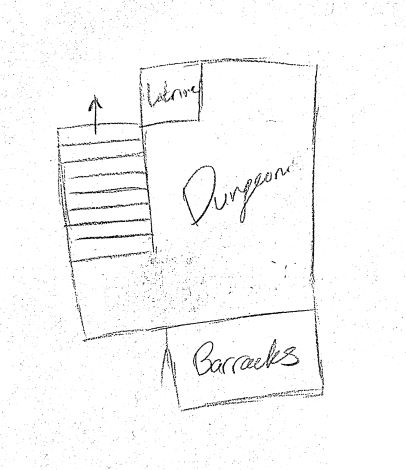 Latrine
Dungeon
Barracks